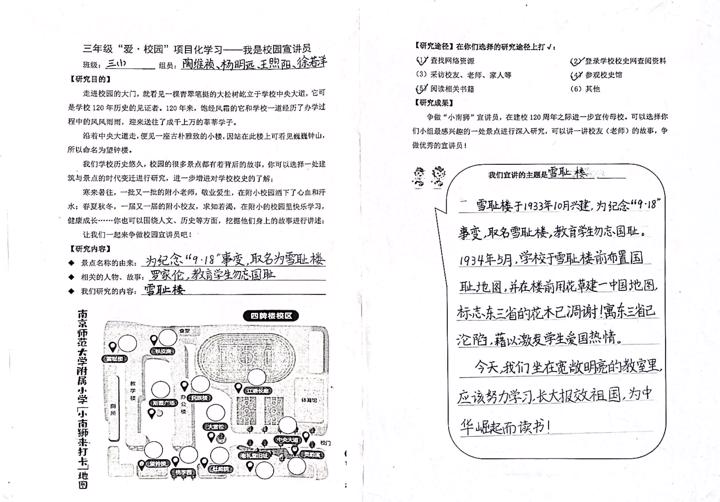 三年级“爱·校园”项目化学习——我是校园宣讲员
班级：三(1) 组员：陶维祯、杨明远、王煦阳、徐若泽
【研究目的】
走进校园的大门，就看见一棵青翠笔挺的大松树屹立于学校中央大道，它可
是学校 120 年历史的见证者。120 年来，饱经风霜的它和学校一道经历了办学过
程中的风风雨雨，迎来送往了成千上万的莘莘学子。
沿着中央大道走，便见一座古朴雅致的小楼，因站在此楼上可看见巍巍钟山，
所以命名为望钟楼。
我们学校历史悠久，校园的很多景点都有着背后的故事，你可以选择一处建
筑与景点的时代变迁进行研究，进一步增进对学校校史的了解；
寒来暑往，一批又一批的附小老师，敬业爱生，在附小校园洒下了心血和汗
水；春夏秋冬，一届又一届的附小校友，求知若渴，在附小的校园里快乐学习，
健康成长……你也可以围绕人文、历史等方面，挖掘他们身上的故事进行讲述；
让我们一起来争做校园宣讲员吧！
【研究内容】
◆ 景点名称的由来：为纪念“9·18”事变，取名为雪耻楼
◆ 相关的人物、故事：罗家伦，教育学生勿忘国耻
◆ 我们研究的内容：雪耻楼
南京师范大学附属小学“小南狮来打卡”地图
四牌楼校区
食堂
教学楼
办公楼
体育馆
中央大道
校门
【研究途径】在你们选择的研究途径上打√：
(1）查找网络资源 (2）登录学校校史网查阅资料
(3）采访校友、老师、家人等 (4）参观校史馆
(5）阅读相关书籍 (6）其他
【研究成果】
争做“小南狮”宣讲员，在建校 120 周年之际进一步宣传母校。可以选择你
们小组最感兴趣的一处景点进行深入研究，可以讲一讲校友（老师）的故事，争
做优秀的宣讲员！
我们宣讲的主题是雪耻楼
雪耻楼于1933年10月兴建，为纪念“9·18”
事变，取名雪耻楼，教育学生勿忘国耻。
1934年5月，学校于雪耻楼前布置国
耻地图，并在楼前用花草建一中国地图，
标志东三省的花木已凋谢！寓东三省已
沦陷，藉以激发学生爱国热情。
今天，我们坐在宽敞明亮的教室里，
应该努力学习，长大报效祖国，为中
华崛起而读书！